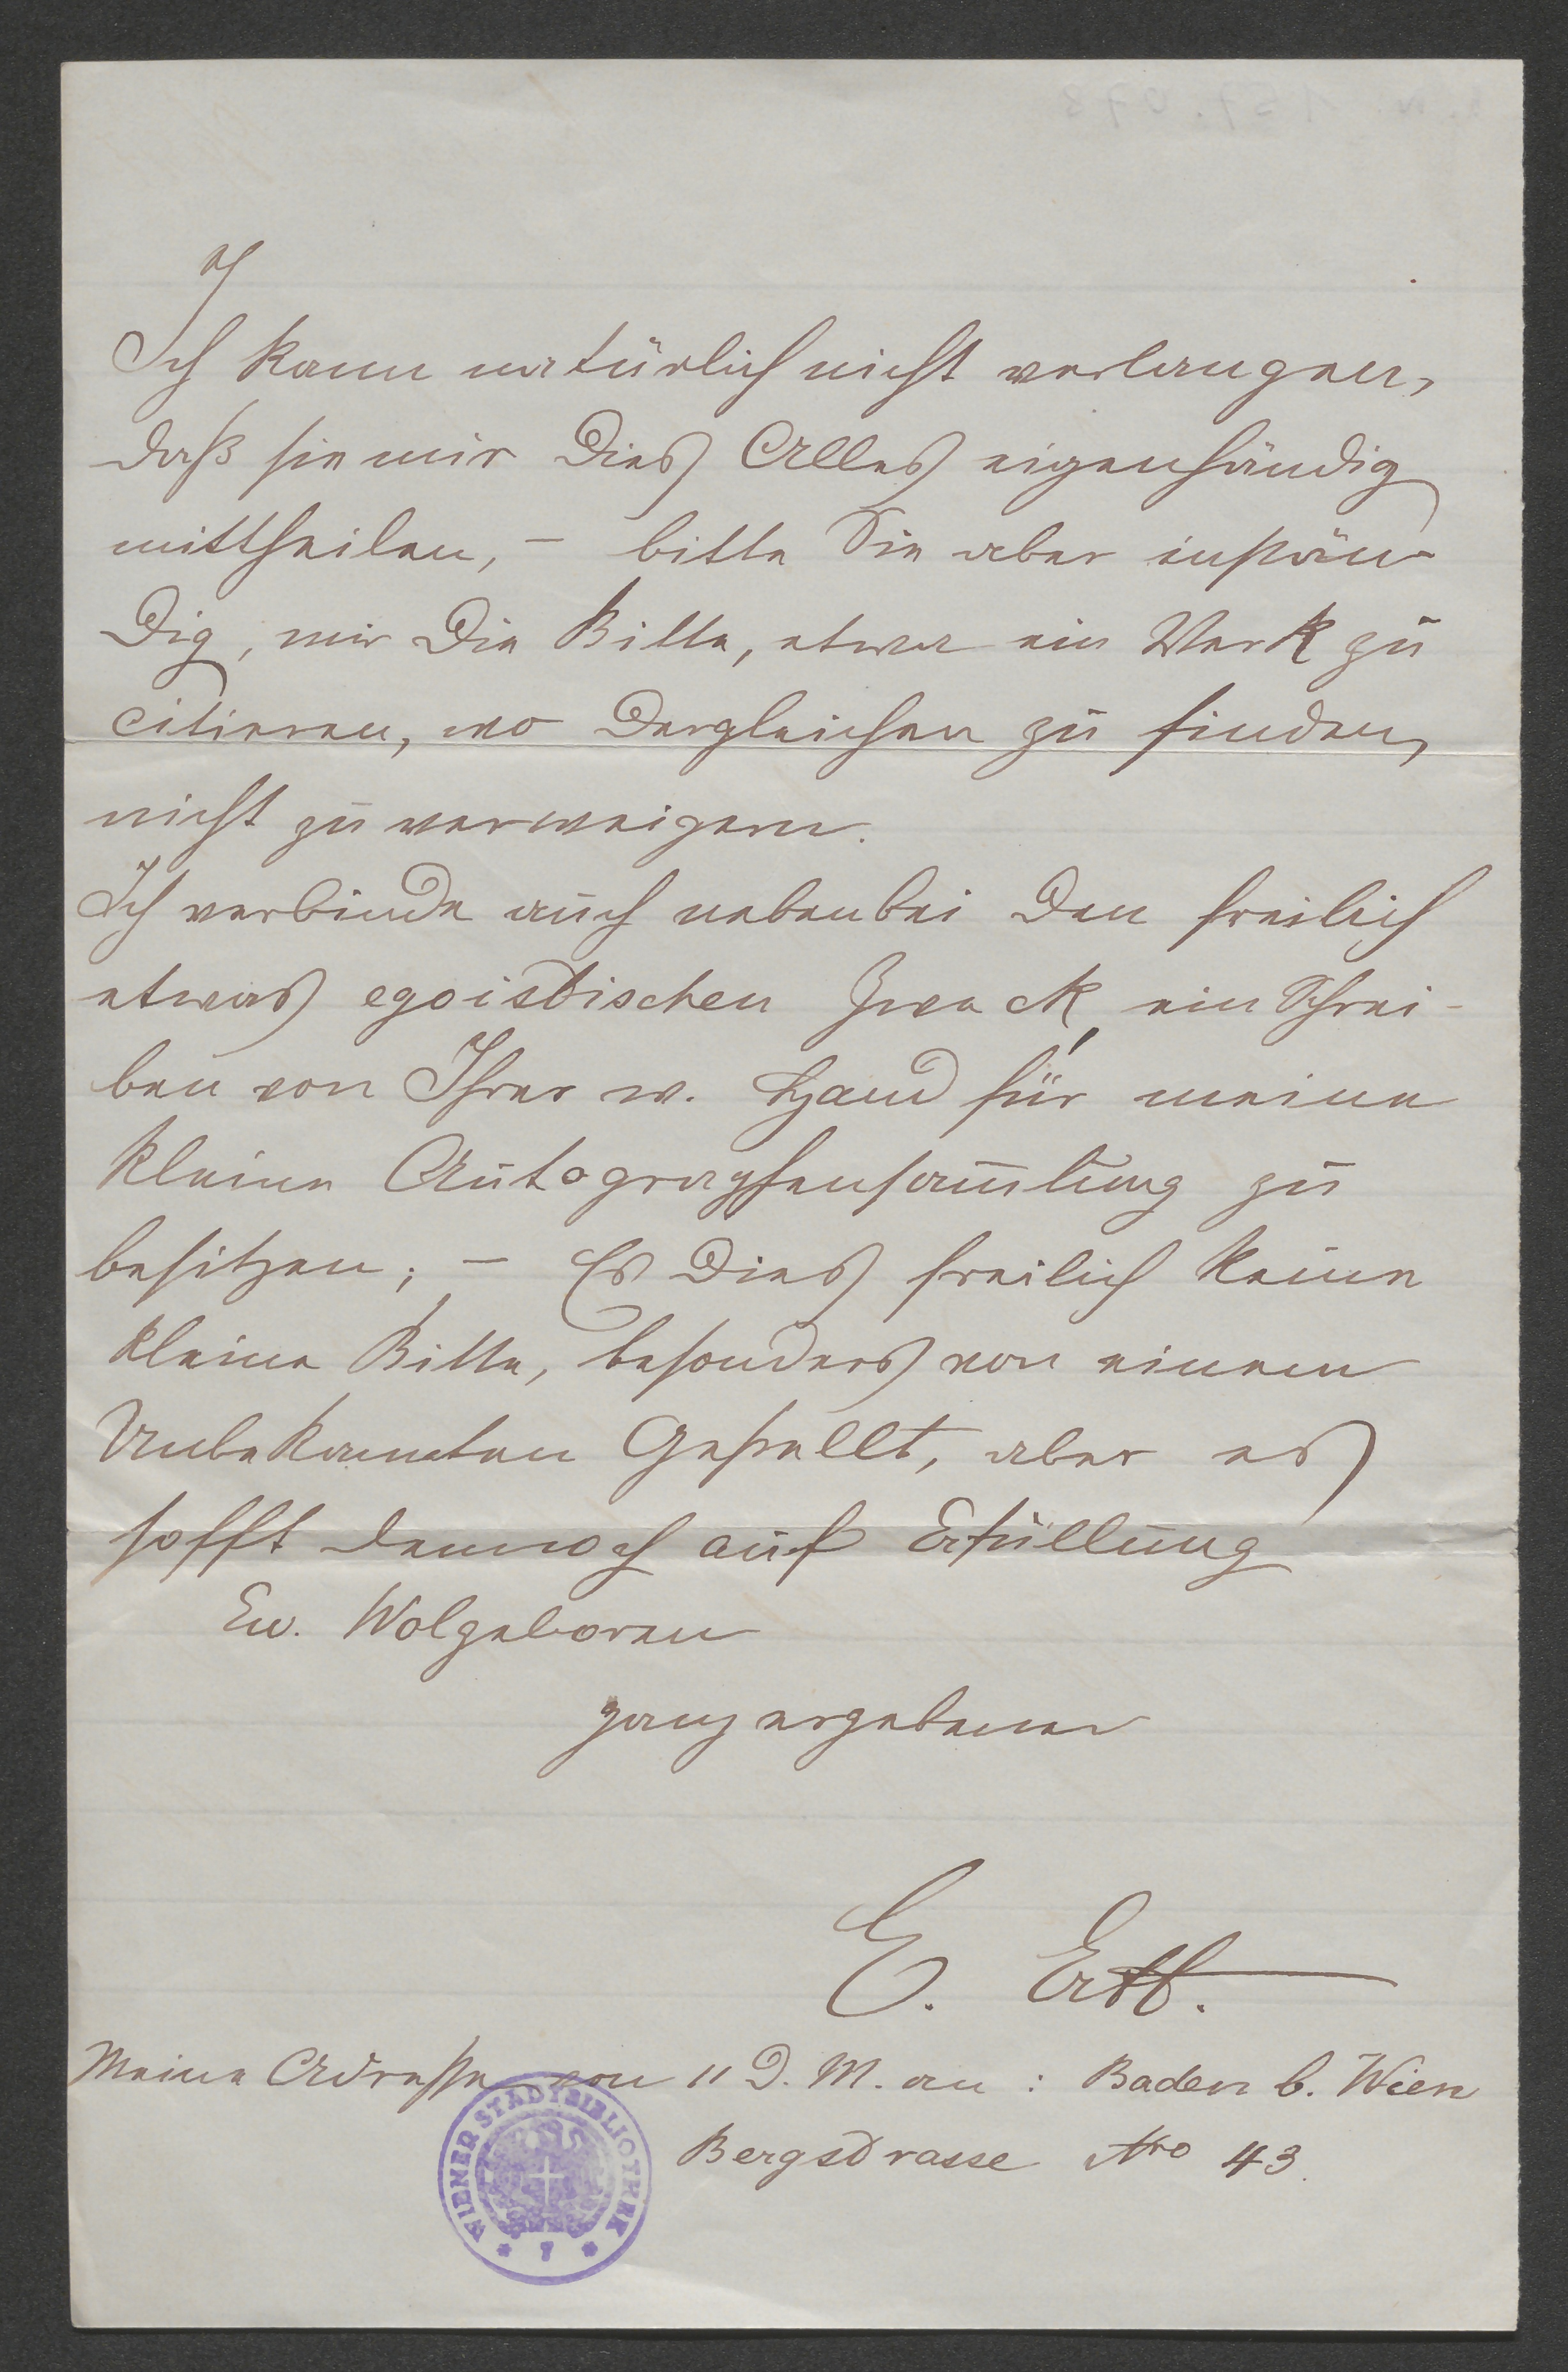 Ich kann natürlich nicht verlangen,
daß sie mir Dies Alles eigenhändig
mittheilen, – bitte Sie aber instän-
dig, mir die Bitte, etwa ein Werk zu
citieren, wo Dergleichen zu finden,
nicht zu verweigern.
Ich verbinde auch nebenbei den freilich
etwas egoistischen Zweck, ein Schrei-
ben von Ihrer w. Hand für meine
kleine Autographensam̅lung zu
besitzen; – Es Dies freilich keine
kleine Bitte, besonders von einem
Unbekannten Gestellt, aber es
hofft dennoch auf Erfüllung
Ew. Wolgeboren
ganz ergebener
E. Ertl.
Meine Adresse von 11 D. M. an: Baden b. Wien
Bergstrasse Nro 43.
WIENER STADTBIBLIOTHEK
* 7 *